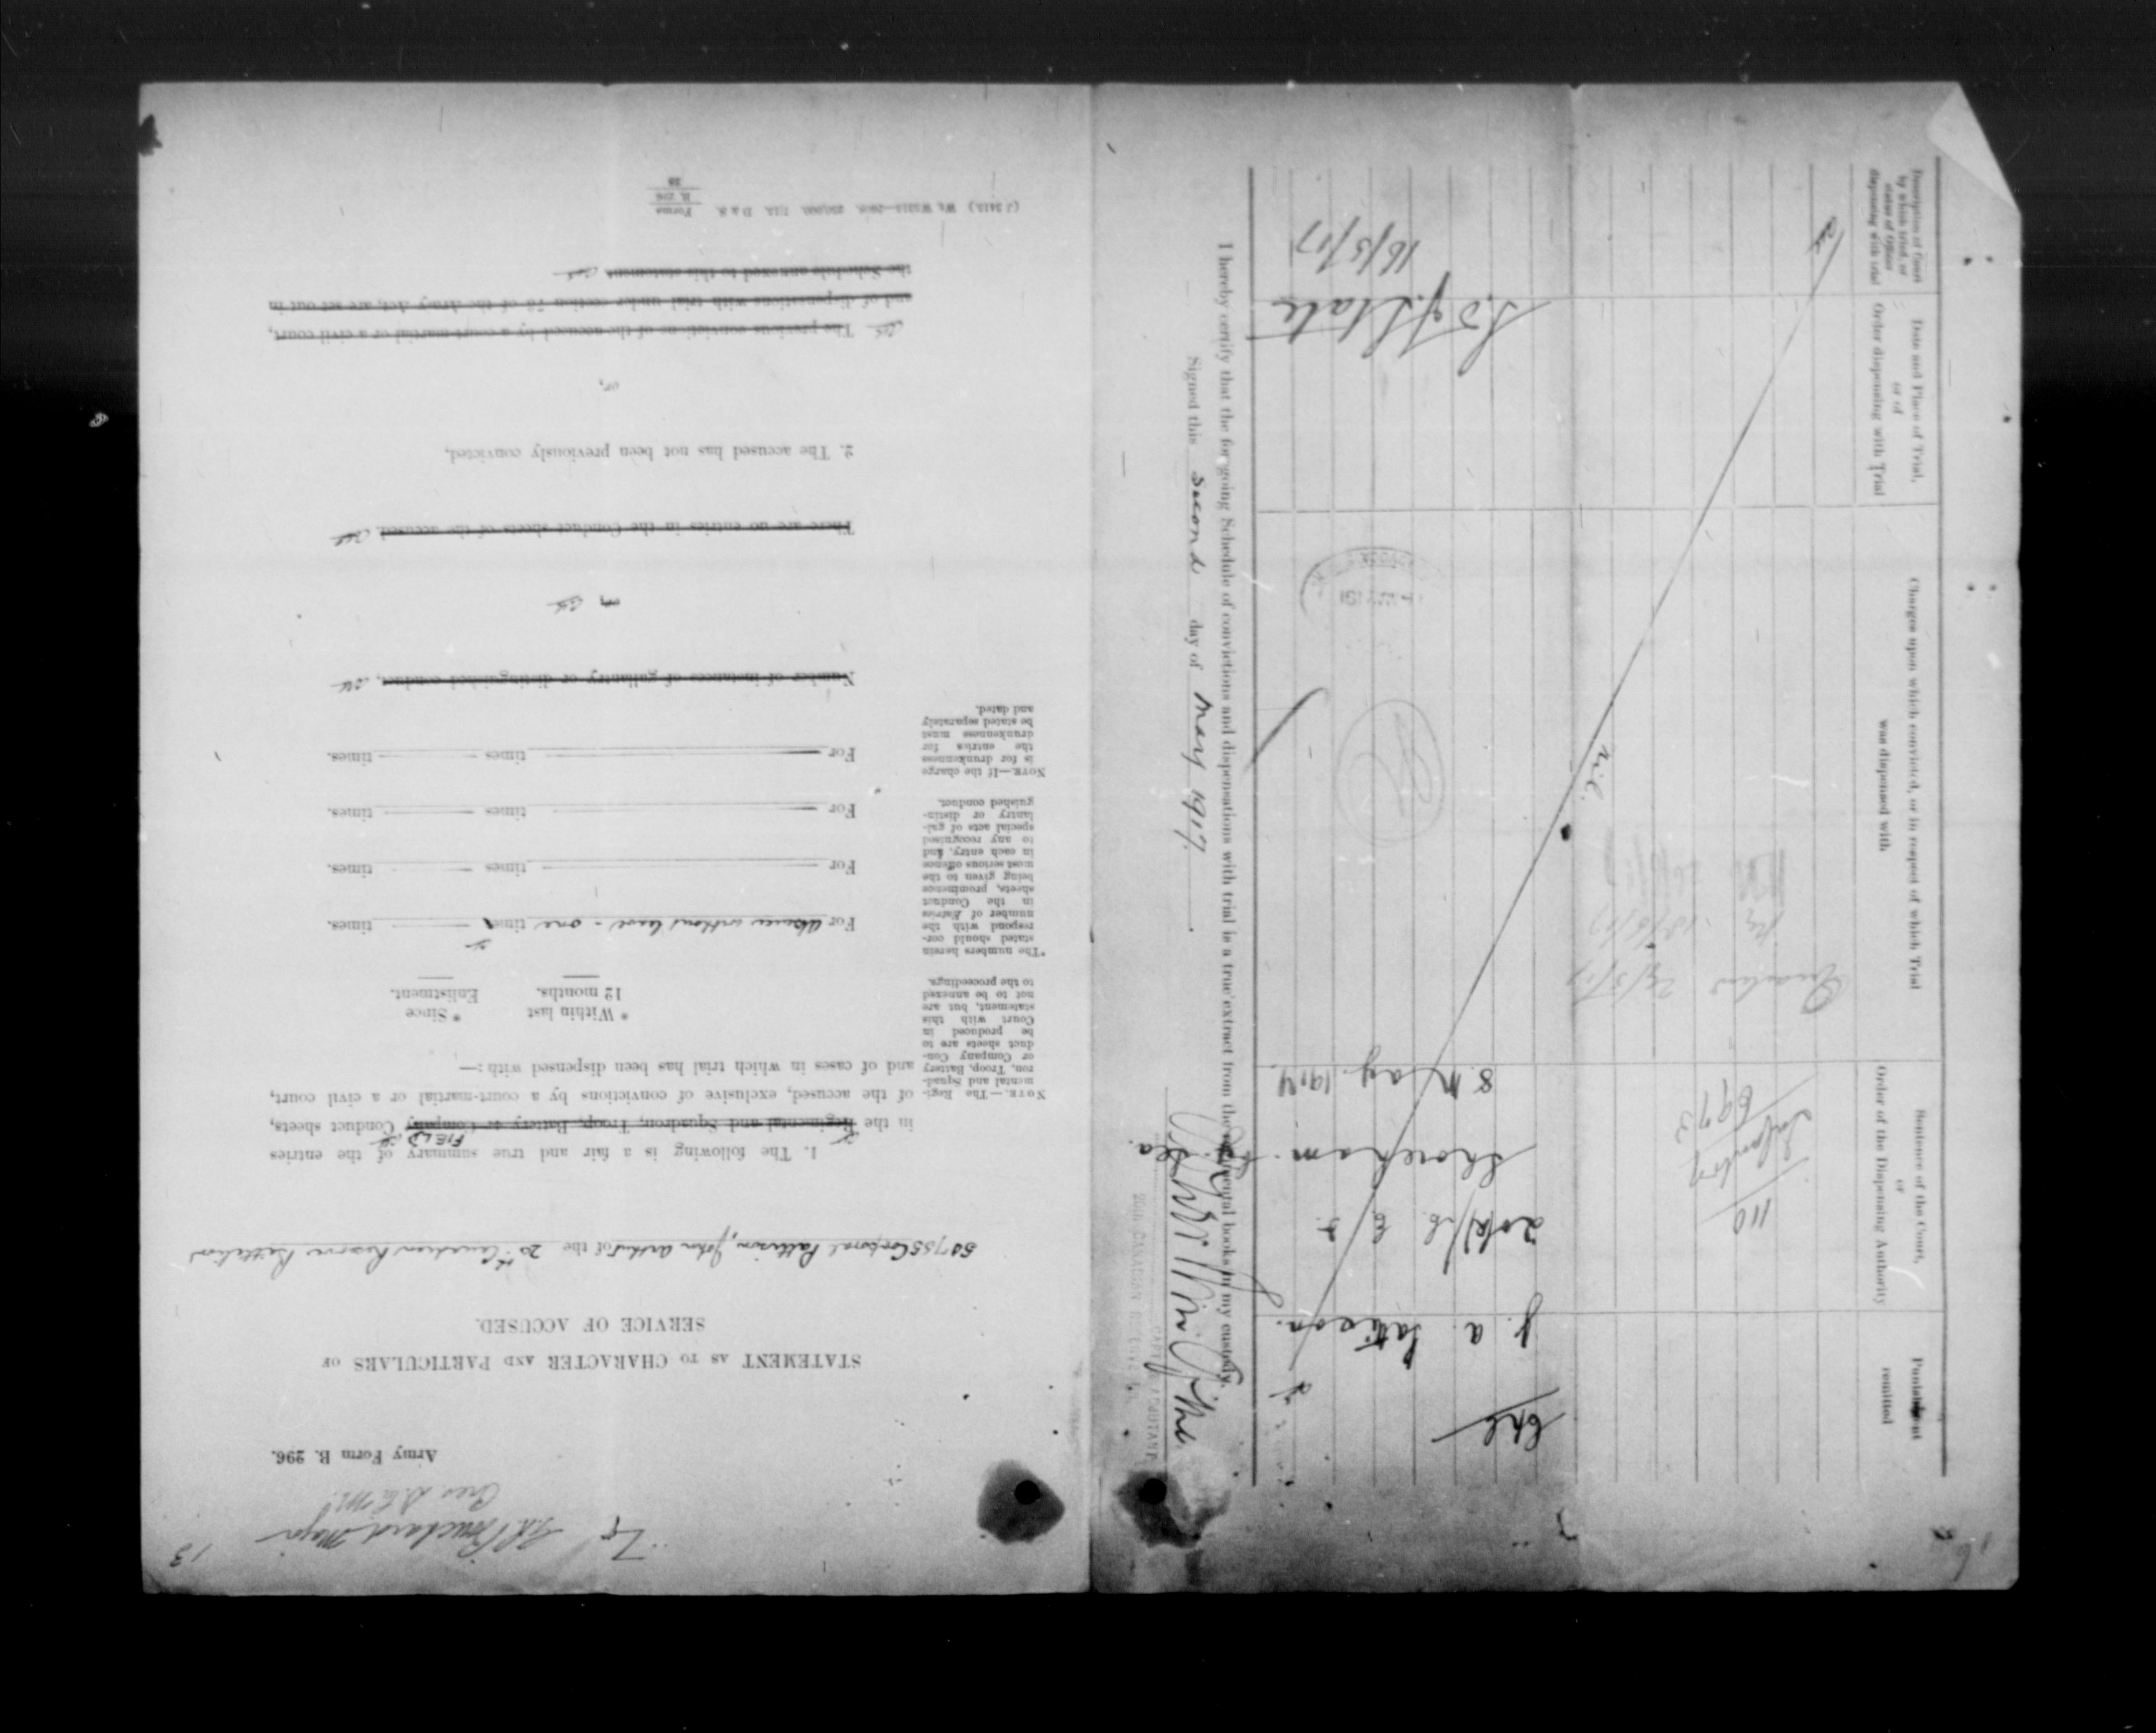 13
Army Form B. 296.
STATEMENT AS TO CHARACTER AND PARTICULARS OF
SERVICE OF ACCUSED.
Corporal Pattison, John Arthur of the 20th Canadian Reserve Battalion
1. The following is a fair and true summary of the entries
FIELD
in the Regimental and Squadron, Troop, Battery or Company Conduct sheets,
of the accused, exclusive of convictions by a court-martial or a civil court,
and of cases in which trial has been dispensed with :—
NOTE.—The Regi-
mental and Squad-
ron, Troop, Battery
or Company Con-
duct sheets are to
be produced in
Court with this
statement, but are
not to be annexed
to the proceedings.
* Within last
12 months.
* Since
Enlistment.
*The numbers herein
stated should cor-
respond with the
number of Entries
in the Conduct
sheets, prominence
being given to the
most serious offence
in each entry, and
to any recognised
special acts of gal-
lantry or distin-
guished conduct.
For absence without leave - one time times.
For times times.
For times times.
For times times.
NOTE.—If the charge
is for drunkenness
the entries for
drunkenness must
be stated separately
and dated.
Number of instances of gallantry or distinguished conduct.
or
There are no entries in the Conduct sheets of the accused.
2. The accused has not been previously convicted,
or,
The previous convictions of the accused by a court-martial or a civil court,
and of dispensations with trial under section 73 of the Army Act, are set out in
the Schedule annexed to this statement.
Forms
B. 296
Description of Court
by which tried, or
status of Officer
dispensing with trial
Date and Place of Trial,
or of
Order dispensing with Trial
Charges upon which convicted, or in respect of which Trial
was dispensed with
Sentence of the Court,
or
Order of the Dispensing Authority
Punishment
remitted
nil.
110
Infantry
6973
Cpl
J. A. Pattison.
Shoreham by Sea
8 May. 1917.
16/5/17
I hereby certify that the foregoing Schedule of convictions and dispensations with trial is a true extract from the regimental books in my custody.
Signed this second day of May 1917.